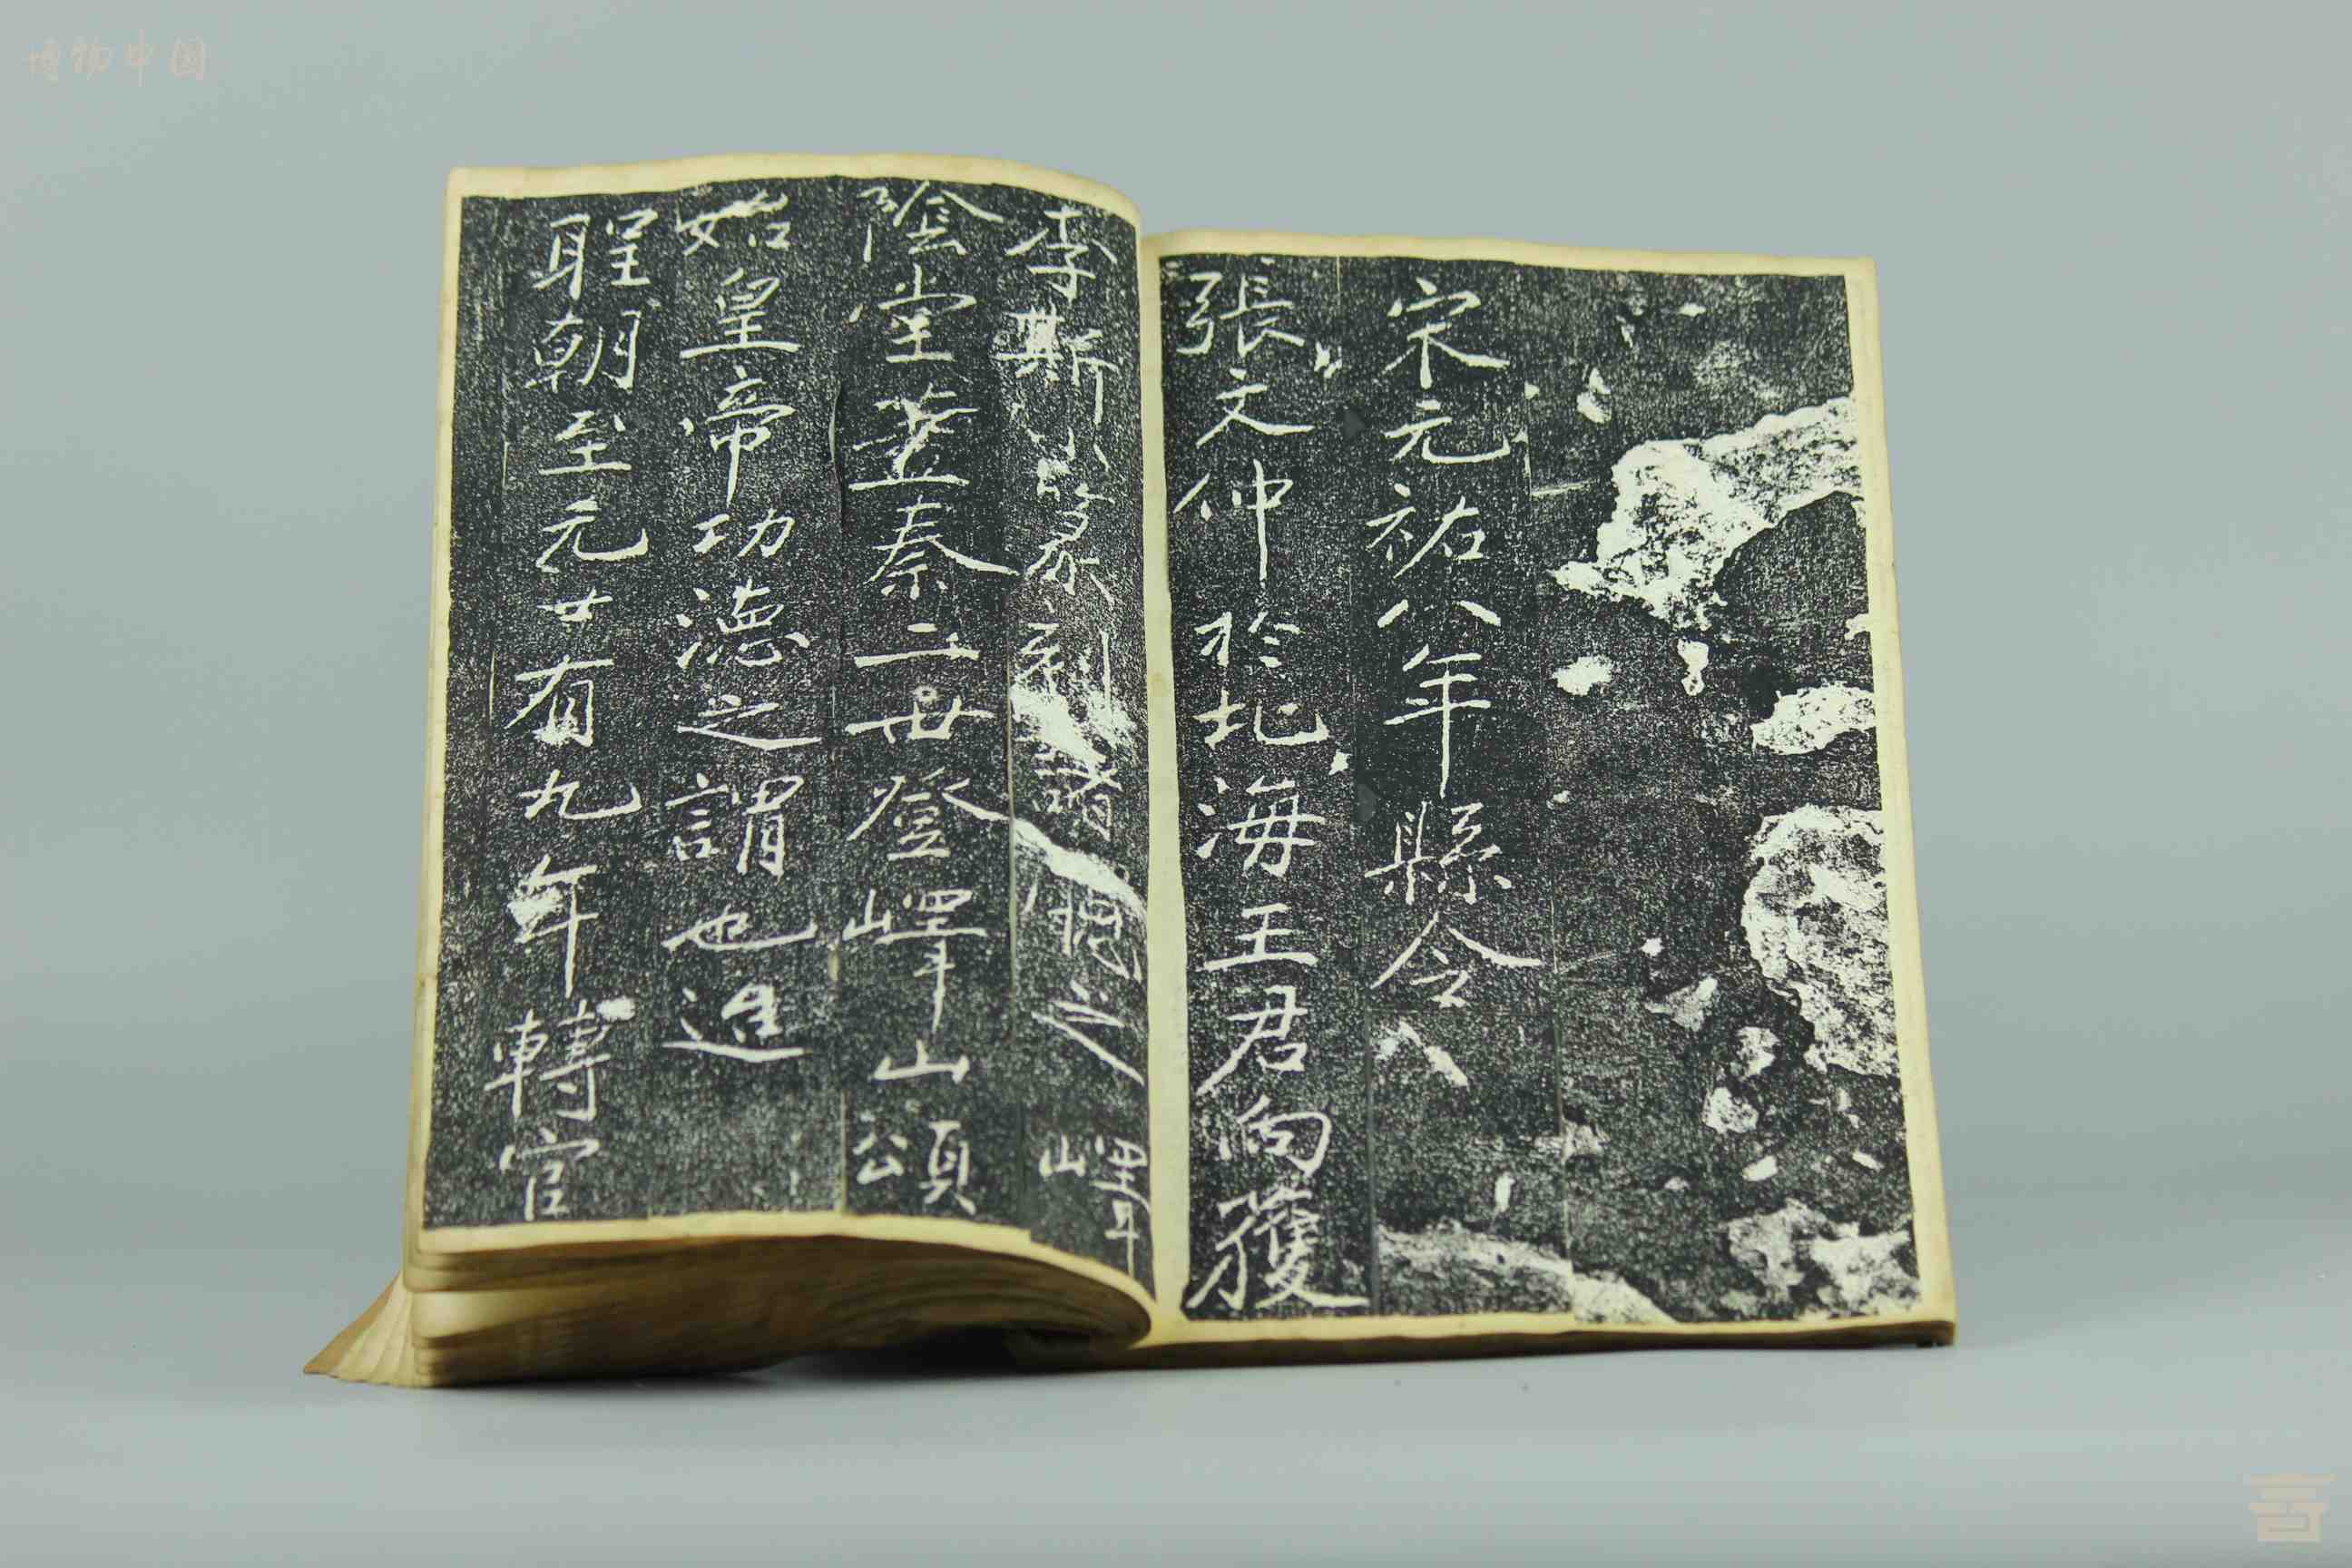 博物中国
宋元祐八年縣令
張文仲於北海王君向獲
李斯小篆刻諸縣之嶧
陰堂蓋秦二世登嶧山頌
始皇帝功德之謂也迨
聖朝至元廿有九年轉官